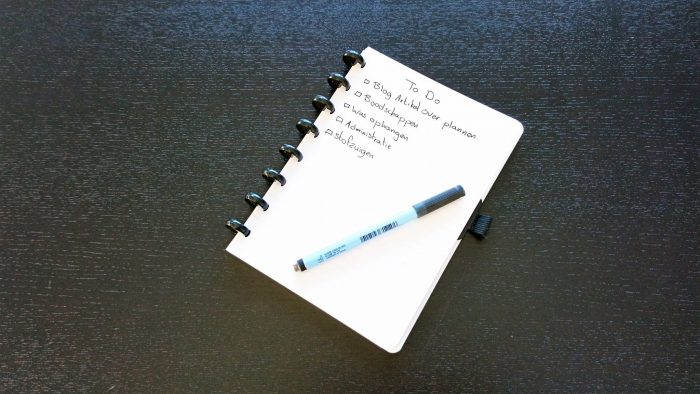 To Do
Blog Artikel over plannen
Boodschappen
Was ophangen
Administratie
Stofzuigen